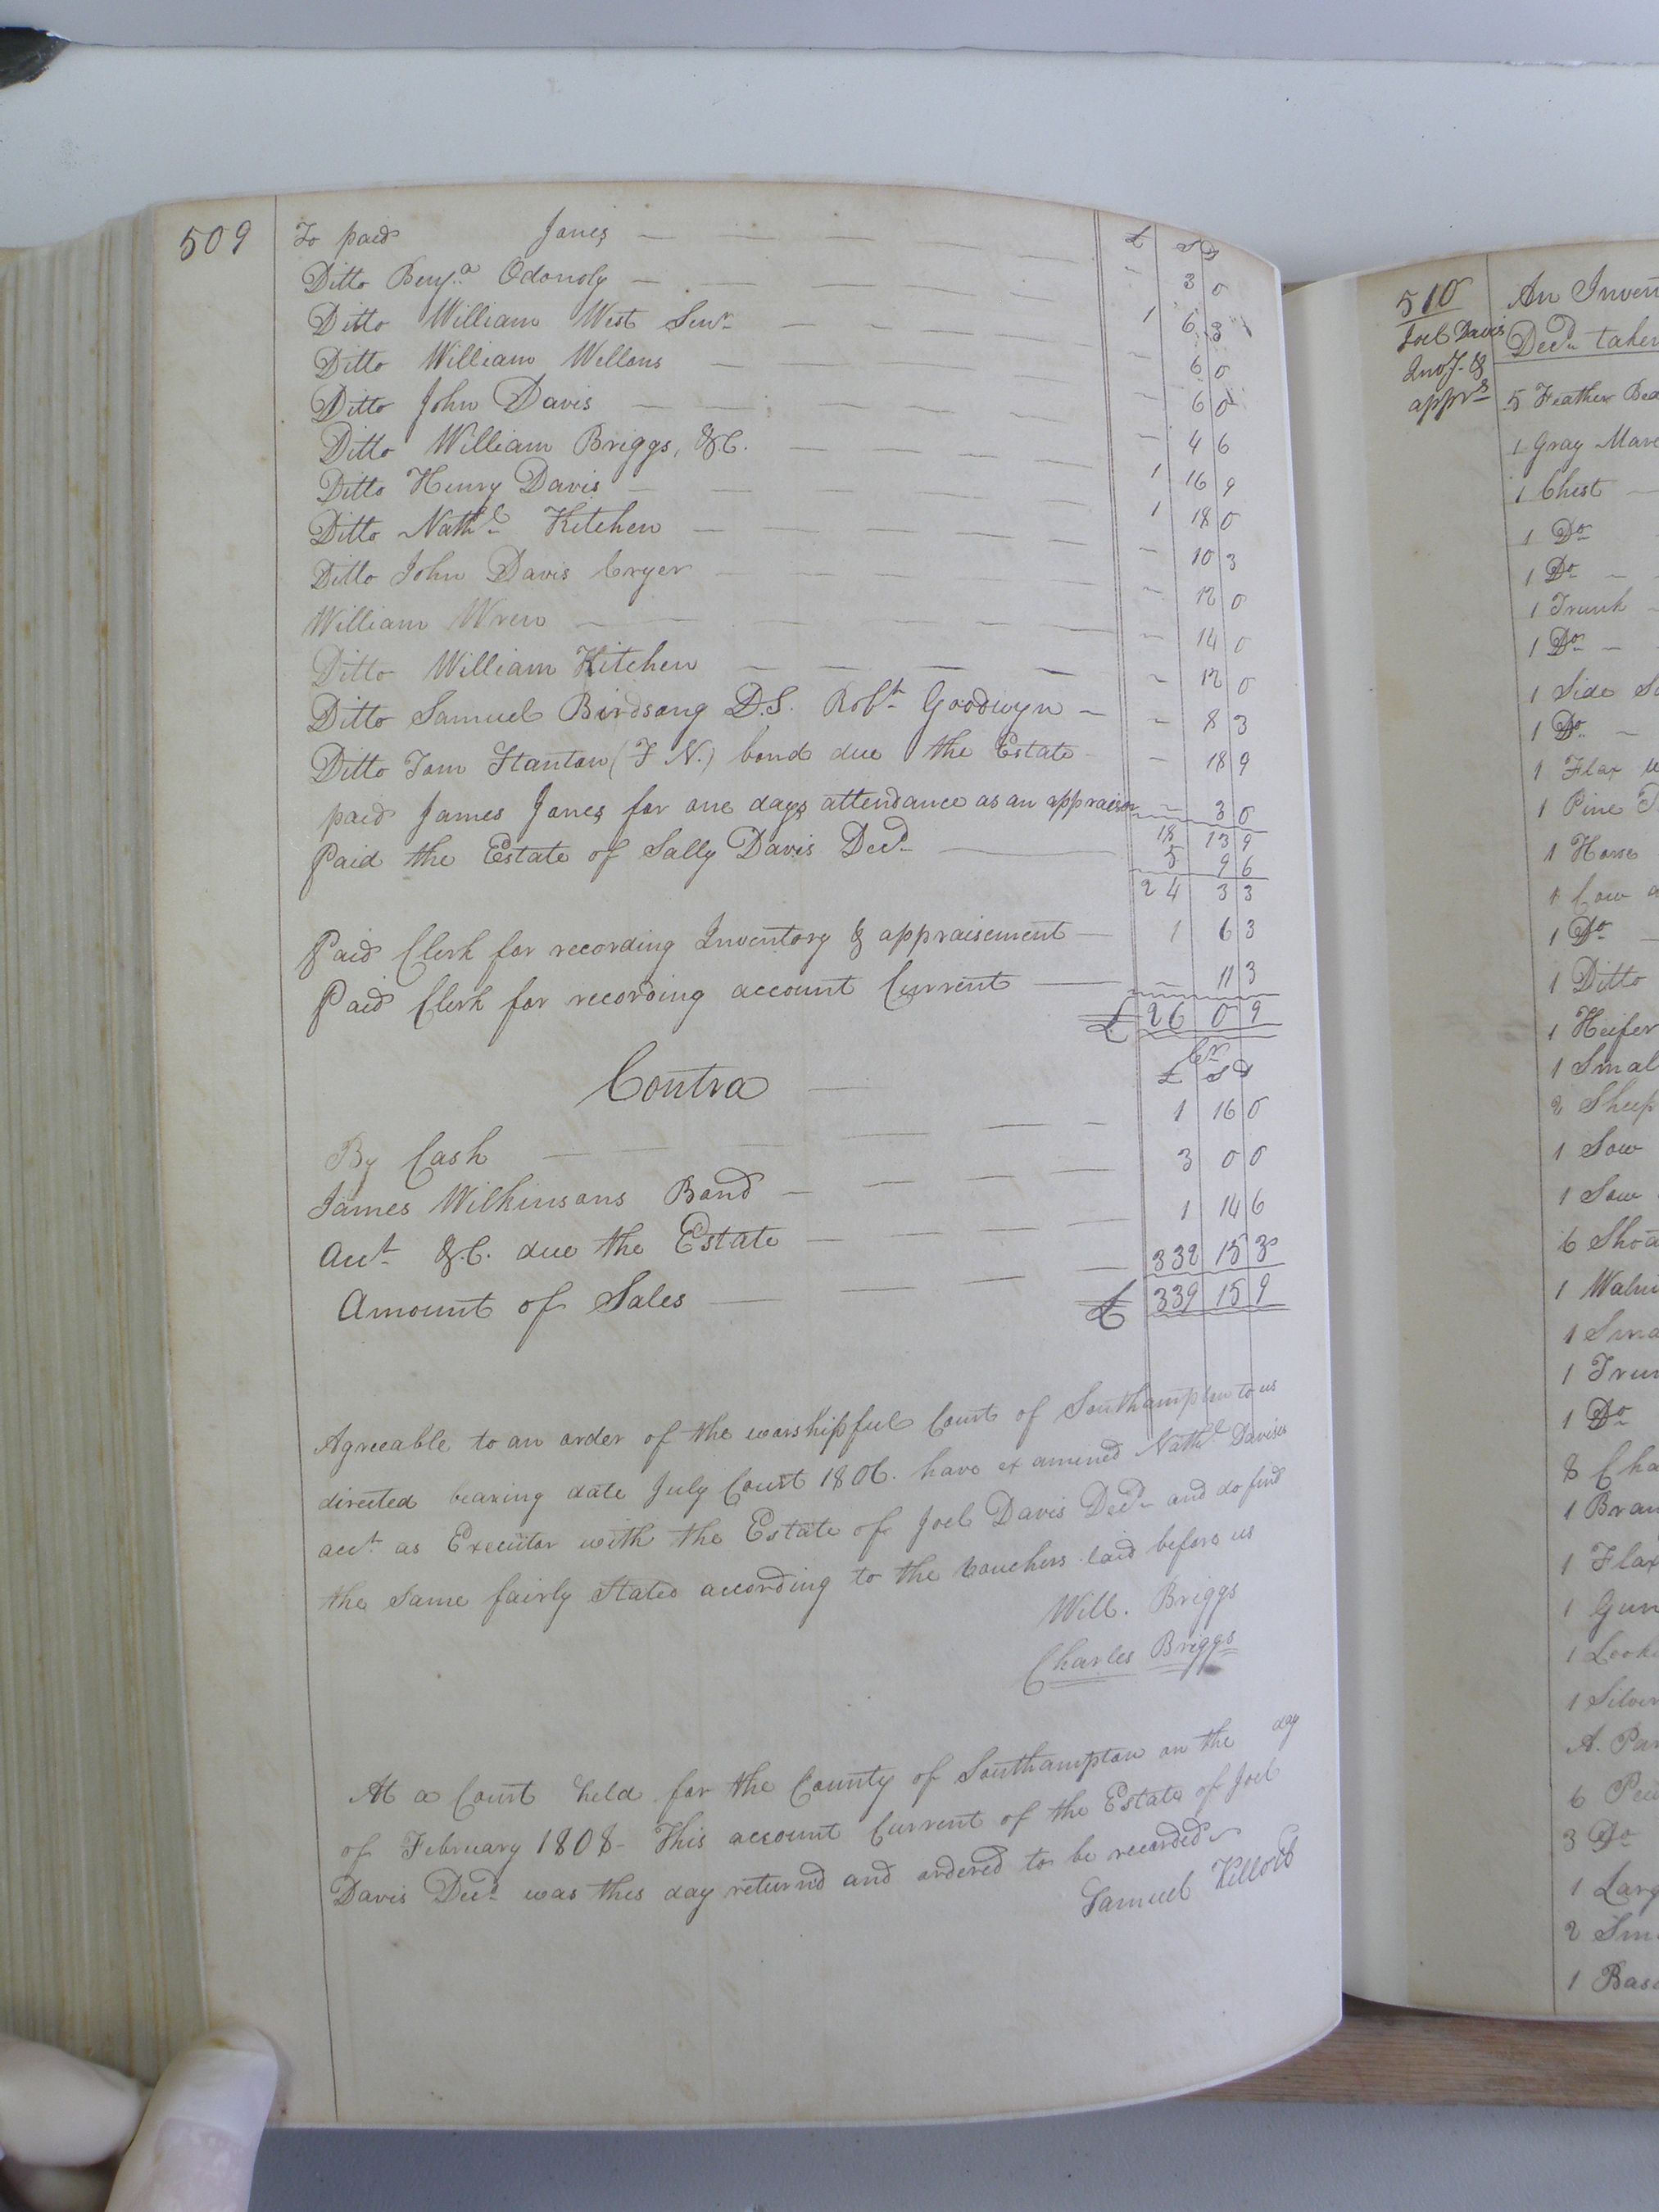 509
To paid Jones — — — — £ S D
- 3 0
Ditto Benja. Odonoly — — — — 1 6 3
Ditto William West Senr. — — — - 6 0
Ditto William Wellons — — — - 6 0
Ditto John Davis — — — - 4 6
Ditto William Briggs, &C. — — — 1 16 9
Ditto Henry Davis — — — 1 18 0
Ditto Nathl. Kitchen — — — - 10 3
Ditto John Davis Cryer — — — - 12 0
William Wren — — — - 14 0
Ditto William Kitchen — — — - 12 0
Ditto Samuel Birdsong D.S. Robt. Goodwyn — - 8 3
Ditto Tom Stanton (F N.) bond due the Estate - 18 9
paid James Jones for one days attendance as an appraiser - 3 0
18 13 9
Paid the Estate of Sally Davis Decd. — 5 9 6
24 3 3
Paid Clerk for recording Inventory & appraisement — 1 6 3
Paid Clerk for recording account Current — - 11 3
£ 26 0 9
Contra — Cr.
£ S D
By Cash — — — 1 16 0
James Wilkinsons Bond — — — 3 0 0
Acct. &.C. due the Estate — — — 1 14 6
Amount of Sales — — — 332 15 3
£ 339 15 9
Agreeable to an order of the worshipful Court of Southampton to us
directed bearing date July Court 1806. have examined Nathl. Davises
acct. as Executor with the Estate of Joel Davis Decd. and do find
the same fairly Stated according to the vouchers laid before us
Will. Briggs
Charles Briggs
At a Court held for the County of Southampton on the day
of February 1808 - This account Current of the Estate of Joel
Davis Decd. was this day returnd and ordered to be recorded
Samuel Kello
510
Joel Davis
Invy. &
apprs.
An Inven
Decd. taken
5 Feather Bed
1 Gray Mare
1 Chest —
1 Do
1 Do —
1 Trunk —
1 Do —
1 Side Sa
1 Do. —
1 Flax w
1 Pine T
1 Horse
1 Cow a
1 Do —
1 Ditto
1 Heifer
1 Smal
2 Sheep
1 Sow
1 Sow
6 Shoa
1 Walnu
1 Sma
1 Trun
1 Do
8 Cha
1 Bran
1 Flax
1 Gun
1 Looki
1 Silver
A. Par
6 Pew
3 Do
1 Larg
2 Sm
1 Bas